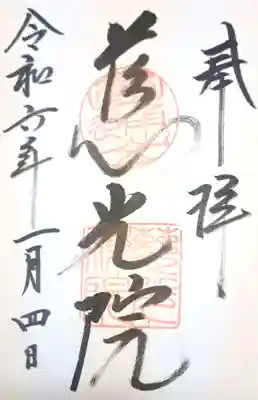 奉拝
慈光院
令和六年一月四日